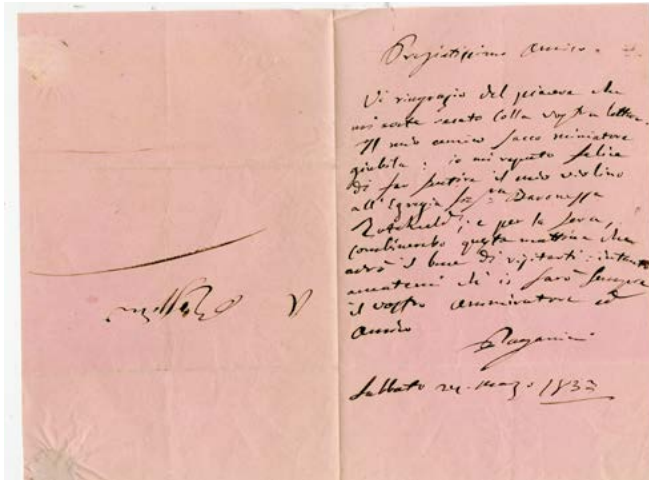 Pregiatissimo Amico.
Vi ringrazio del piacere che
mi avete recato colla vostra lettera.
Il mio amico Sacco miniatore
giubila: io mi reputo felice
di far sentire il mio violino
all'Egregia Sig.ra Baronessa
e per la sera,
combineremo questa mattina che
avrò il bene di visitarti: intanto
amatemi ch'io sarò sempre
il vostro ammiratore ed
Amico
Paganini
Sabbato marzo 183